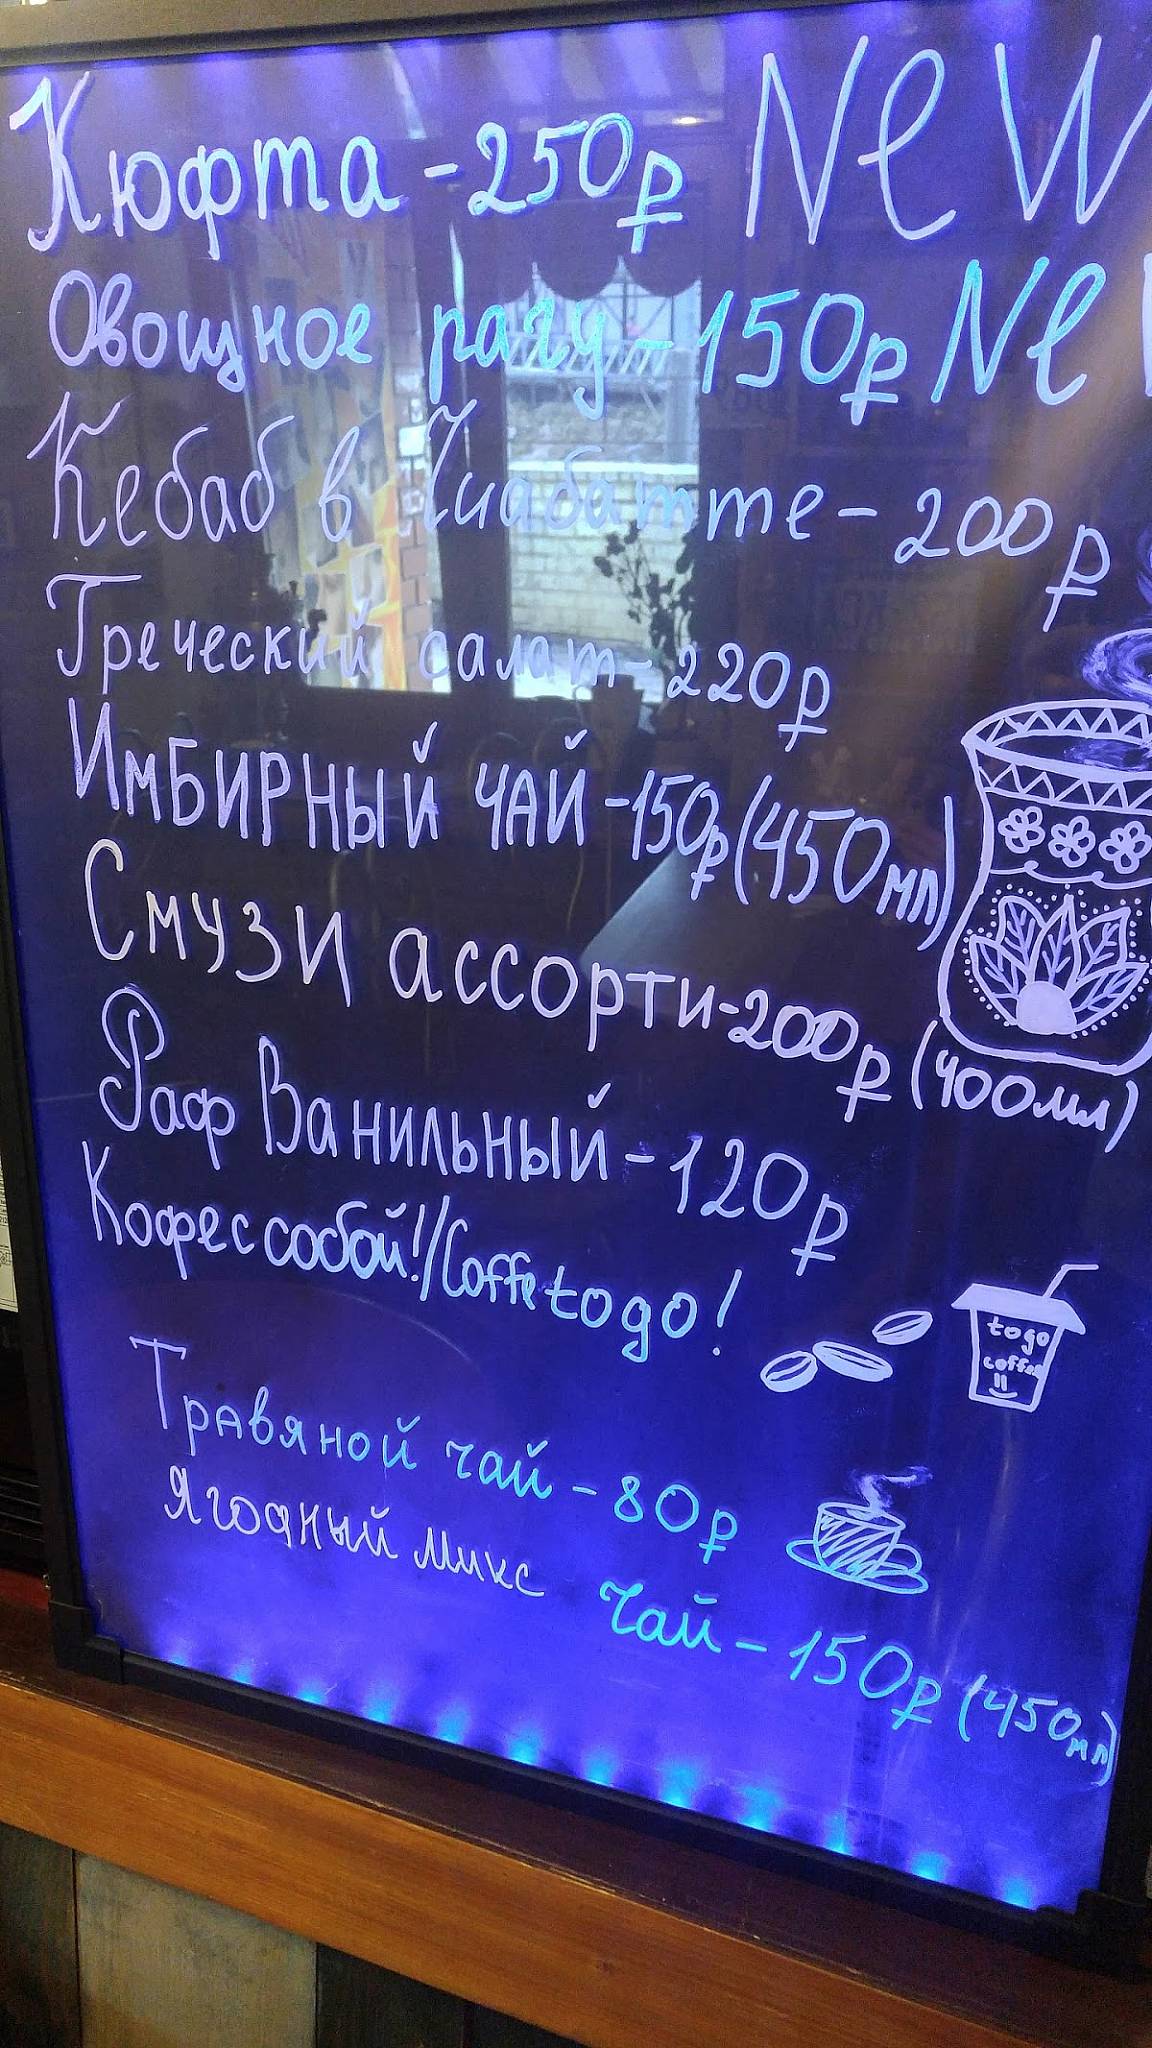 Кюфта - 250₽ New
Овощное рагу - 150₽ Ne
Кебаб в Чиабатте - 200₽
Греческий салат - 220₽
Имбирный чай - 150₽ (450мл)
Смузи ассорти - 200₽ (400мл)
Раф Ванильный - 120₽
Кофе с собой! / Coffe to go!
to go
coffee
Травяной чай - 80₽
Ягодный микс чай - 150₽ (450мл)